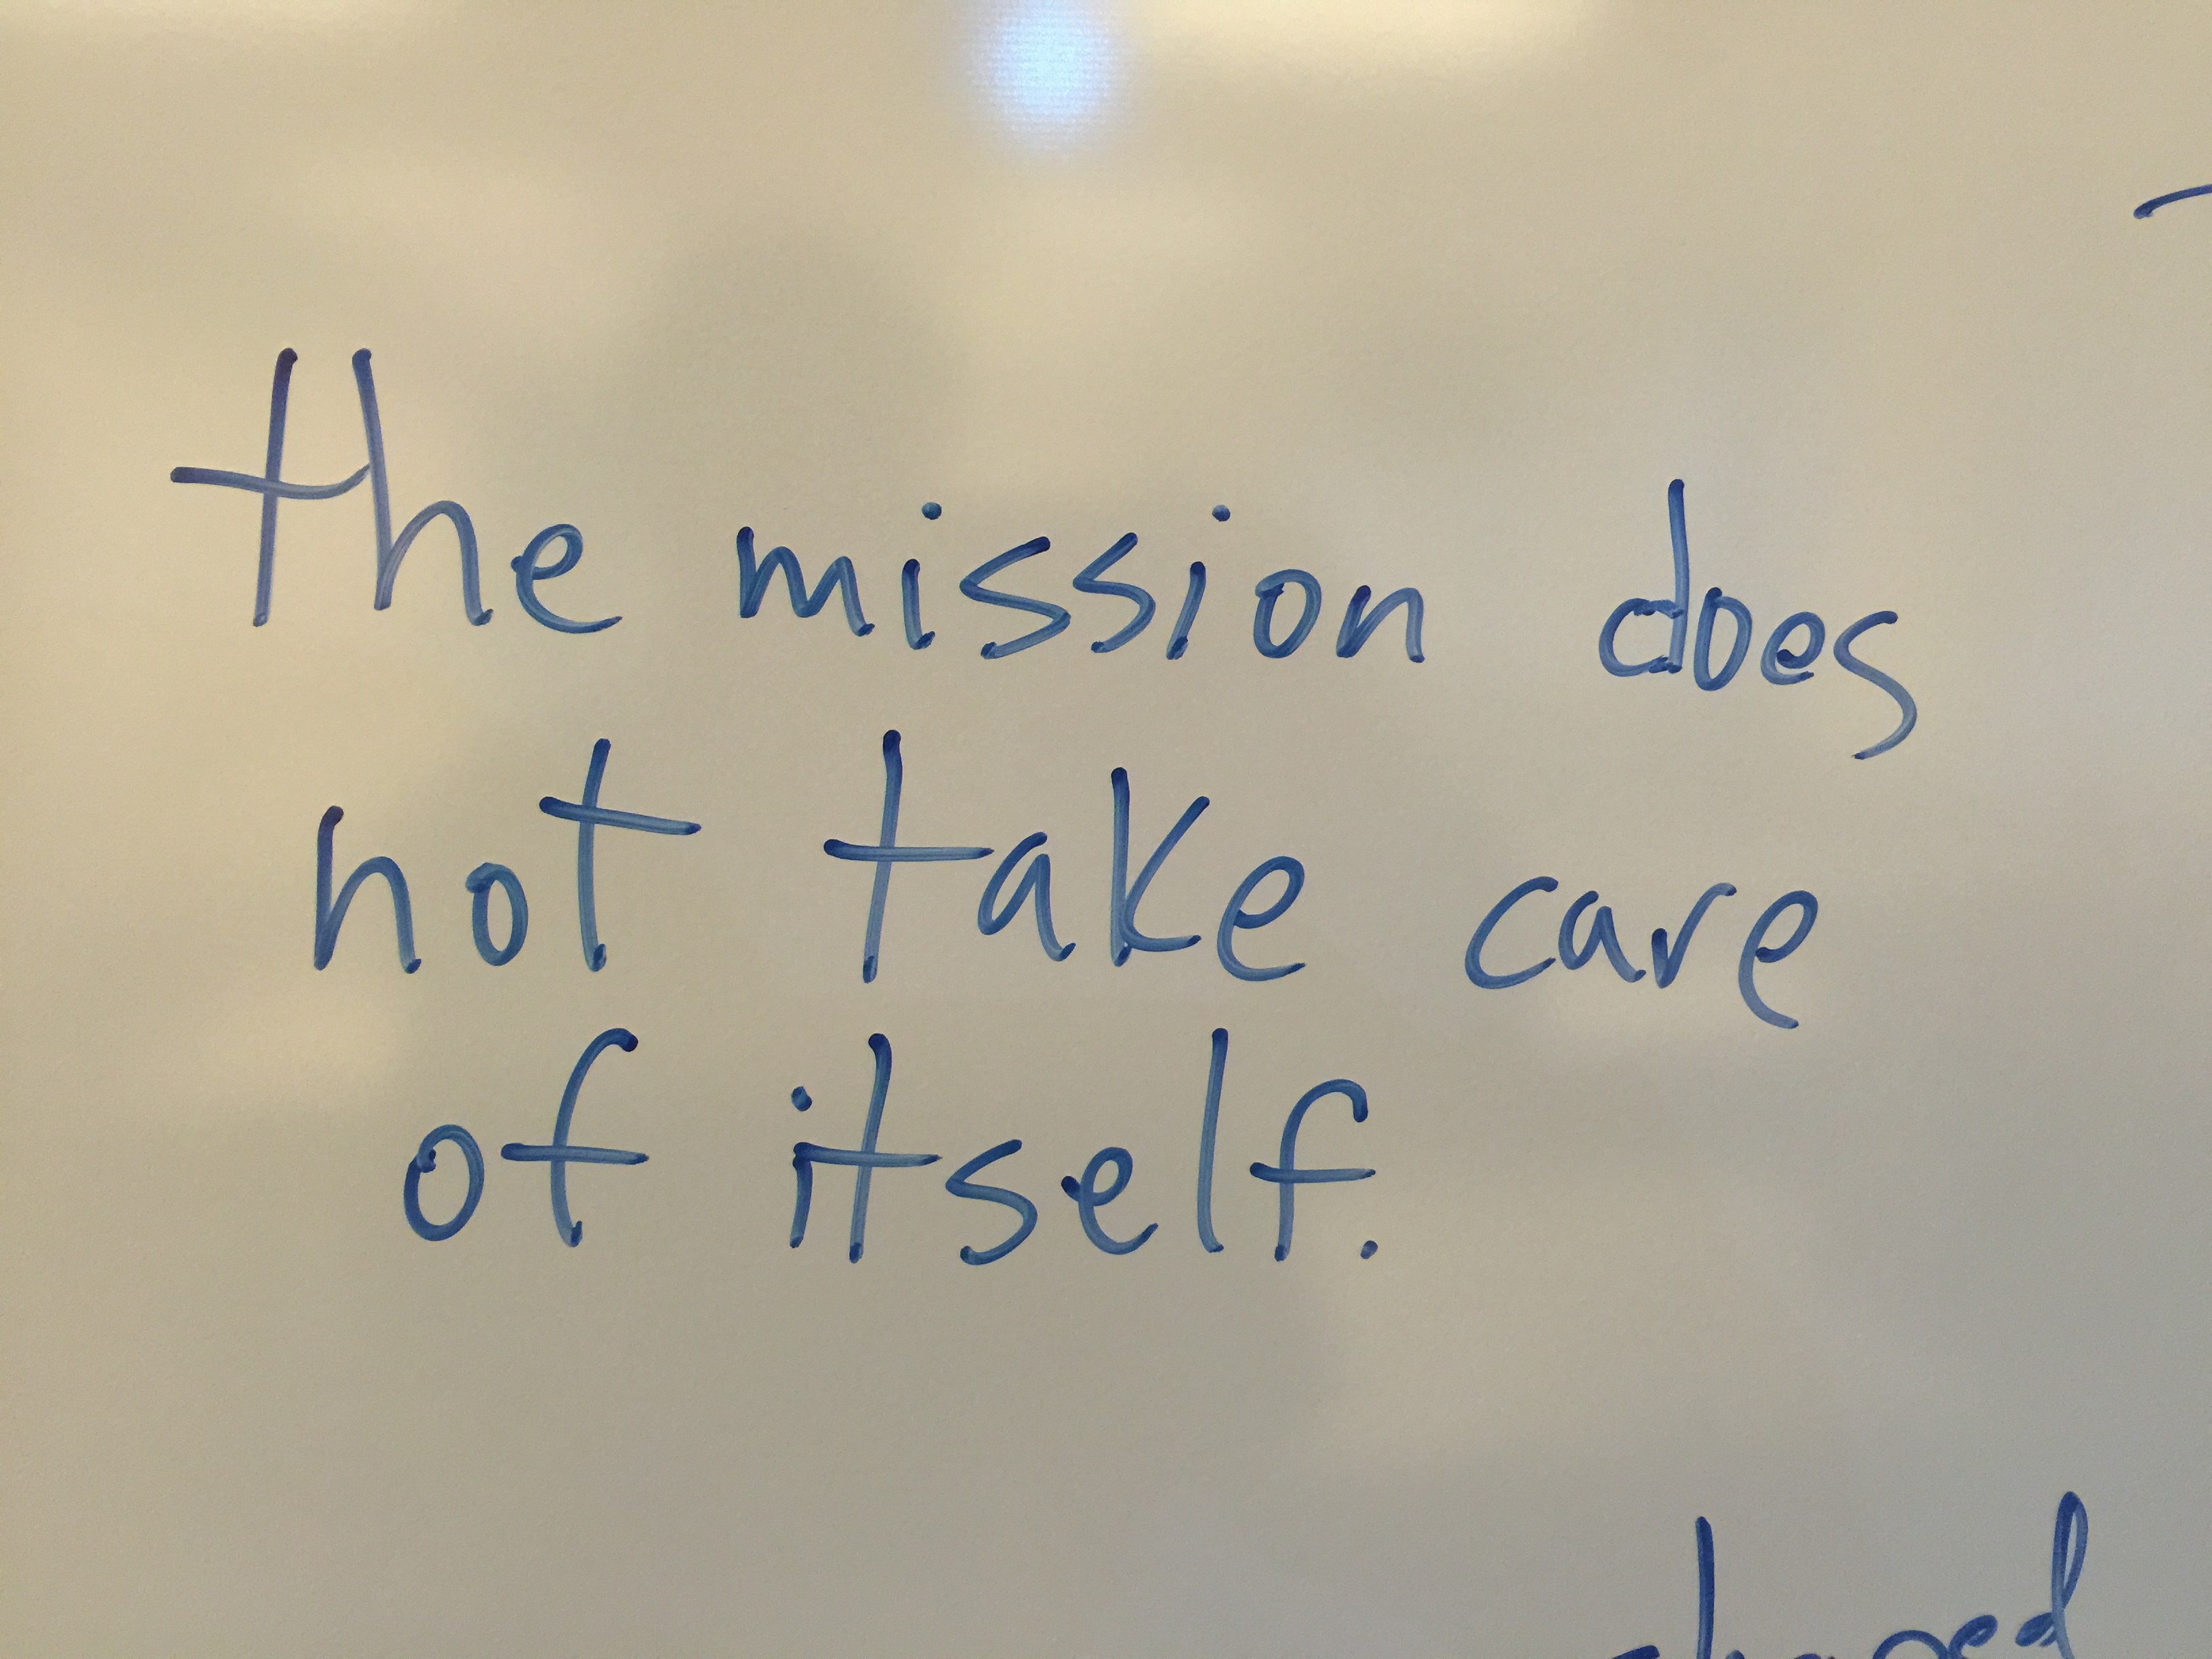 the mission does
not take care
of itself.